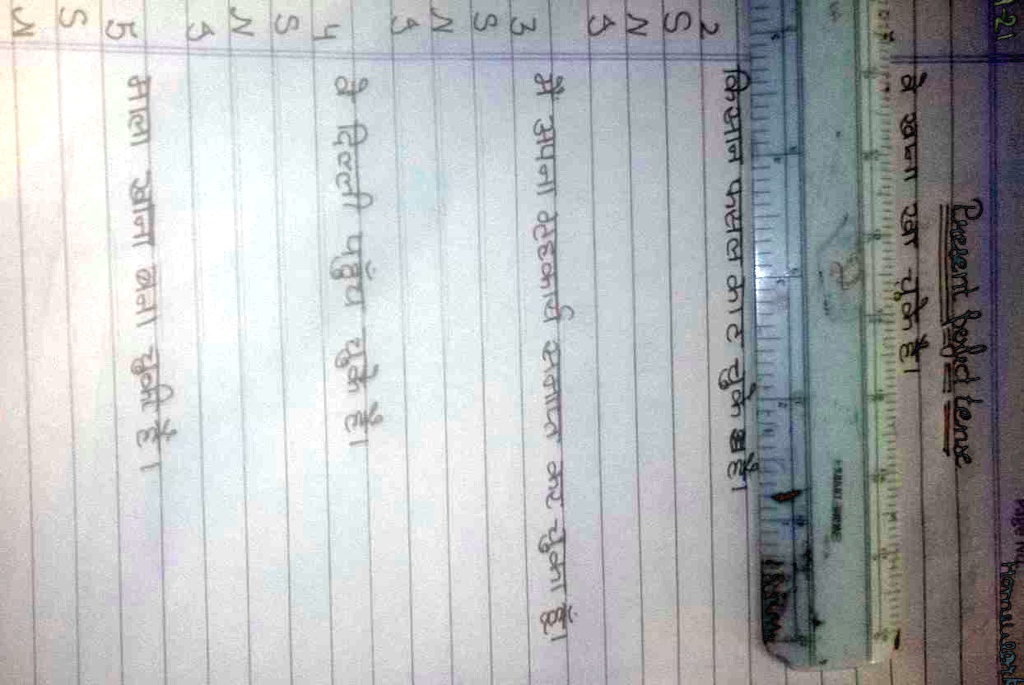 Present perfect tense
वे खाना खा चुके हैं।
2 किसान फसल काट चुके हैं।
S
N
A
3 मैं अपना गृहकार्य समाप्त कर चुका हूँ।
S
N
A
4 वे दिल्ली पहुँच चुके हैं।
S
N
A
5 माला खाना बना चुकी है।
S
N